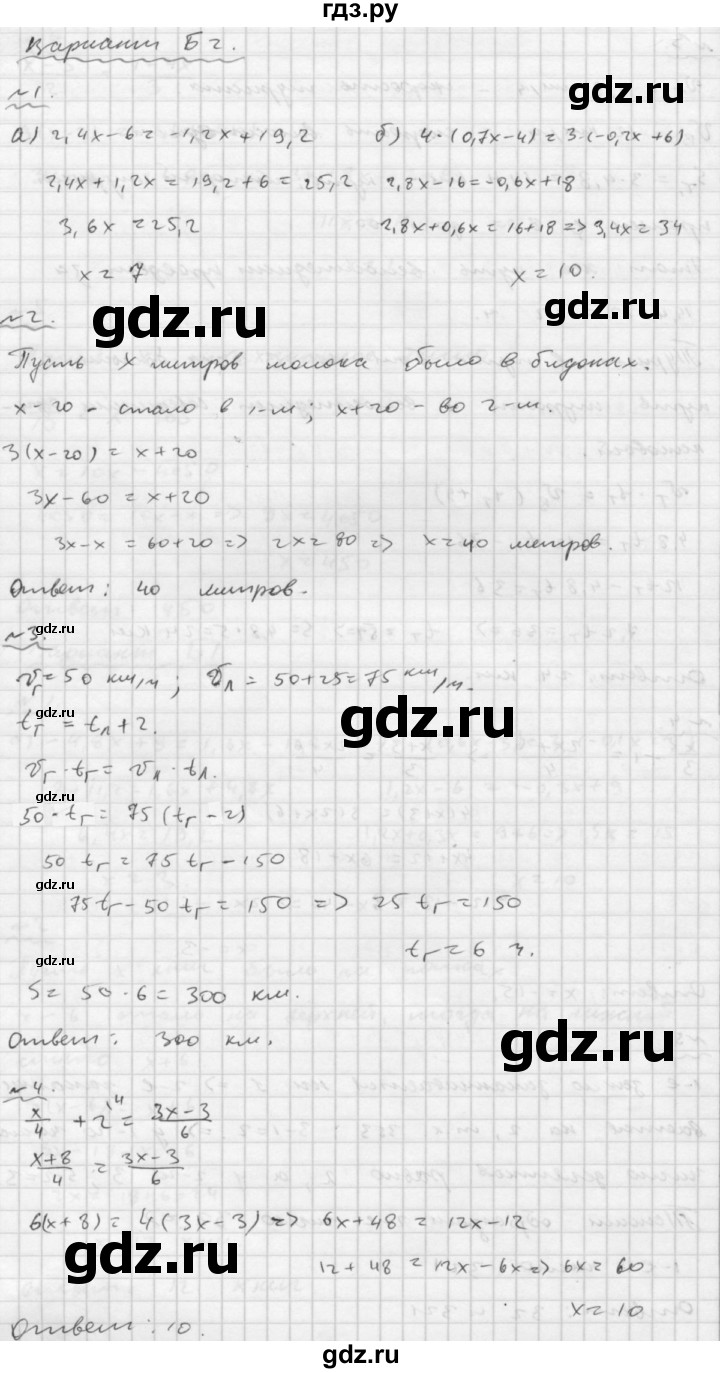 гдз.ру
Вариант Б2.
№1.
gdz.ru
а) 2,4x-6=-1,2x+19,2 б) 4·(0,7x-4)=3·(-0,2x+6)
2,4x+1,2x=19,2+6=25,2 2,8x-16=-0,6x+18
3,6x=25,2 2,8x+0,6x=16+18=>3,4x=34
x=7 x=10.
gdz.ru gdz.ru
№2.
Пусть x литров молока было в бидонах.
x-20 - стало в 1-м; x+20 - во 2-м.
3(x-20)=x+20
3x-60=x+20
3x-x=60+20=>2x=80=>x=40 литров.
Ответ: 40 литров.
gdz.ru
№3.
vг=50 км/ч; vл=50+25=75 км/ч.
gdz.ru gdz.ru
tг=tл+2.
vг·tг=vл·tл.
gdz.ru
50·tг=75(tг-2)
50tг=75tг-150
gdz.ru
75tг-50tг=150=>25tг=150
tг=6 ч.
gdz.ru
S=50·6=300 км.
gdz.ru
Ответ: 300 км.
№4.
x/4+2\4=(3x-3)/6
(x+8)/4=(3x-3)/6
6(x+8)=4(3x-3)=>6x+48=12x-12
gdz.ru
12+48=12x-6x=>6x=60
x=10
Ответ: 10.
gdz.ru
gdz.ru